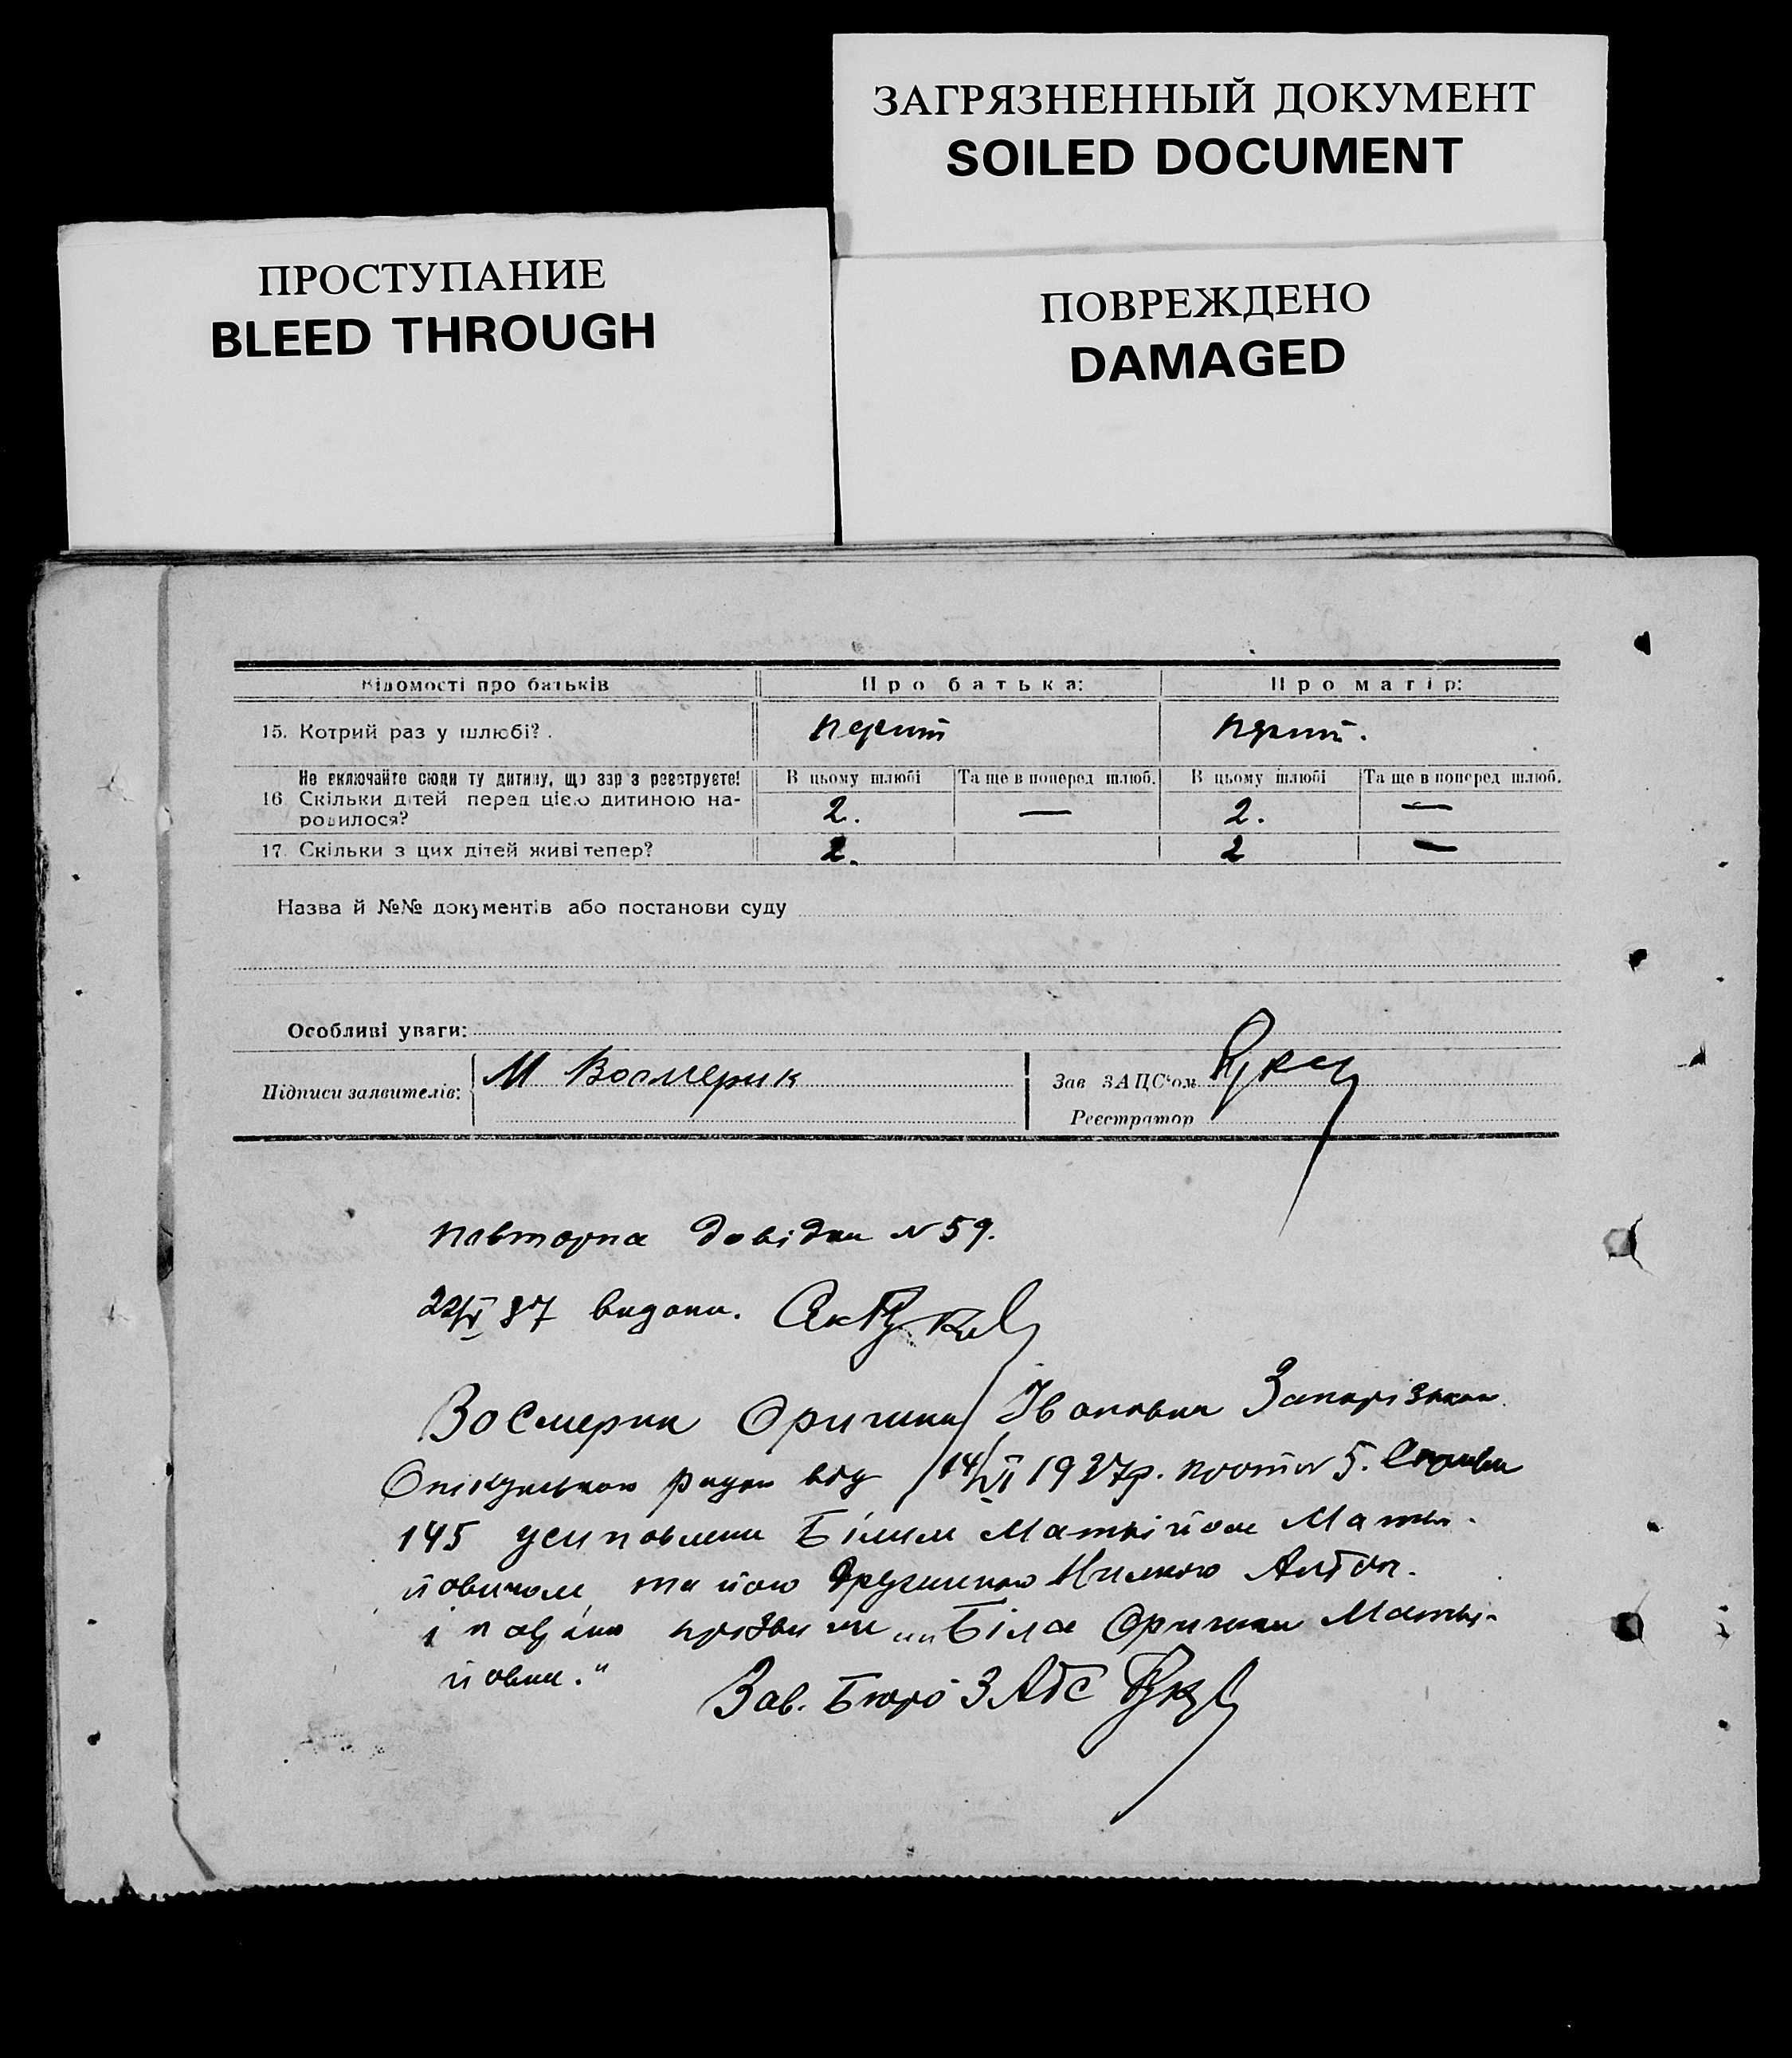 ЗАГРЯЗНЕННЫЙ ДОКУМЕНТ
SOILED DOCUMENT
ПРОСТУПАНИЕ
BLEED THROUGH
ПОВРЕЖДЕНО
DAMAGED
Відомості про батьків Про батька: Про матір:
15. Котрий раз у шлюбі?. перший перший.
Не включайте сюди ту дитину, що зараз реєструєте! В цьому шлюбі Та ще в поперед шлюб. В цьому шлюбі Та ще в поперед шлюб.
16 Скільки дітей перед цією дитиною на- 2. — 2. —
родилося?
17. Скільки з цих дітей живі тепер? 2. 2 —
Назва й №№ документів або постанови суду
Особливі уваги:
Підписи заявителів: М Восмерик Зав ЗАЦС'ом
Реєстратор
повторна довідка № 59.
22/V 37 видана.
Восмерик Оришка Івановна Запорізькою
Опікунською радою від 14/VI 1937р. прот № 5. Справа
145 усиновлена Білим Матвійом Матві-
йовичом та його дружиною Антон.
і надано прозвище „Біла Оришка Матві-
йовна."
Зав. Бюро ЗАГС